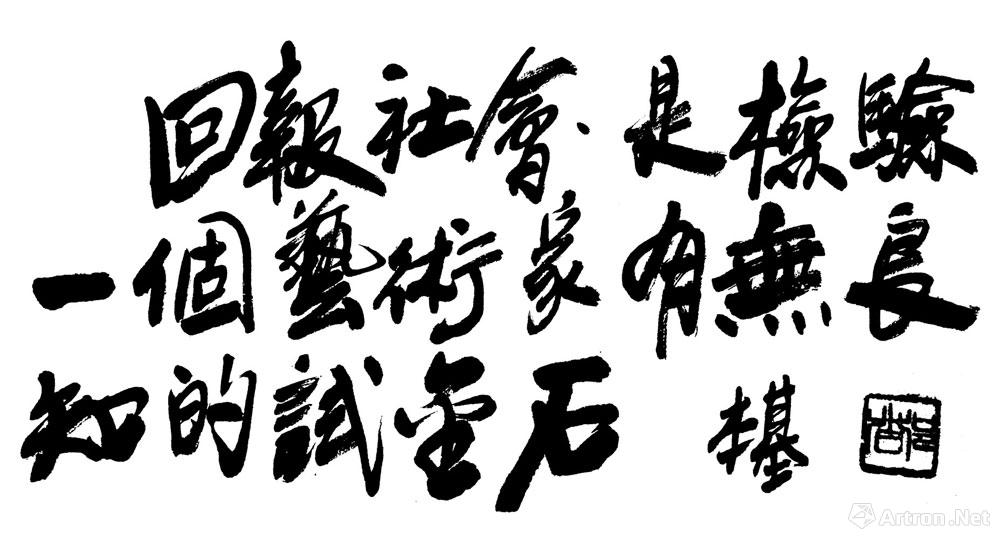 回報社會是檢驗
一個藝術家有無良
知的試金石
本基
Artron.Net